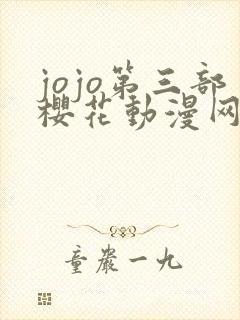 jojo第三部
櫻花動漫网
童嚴一九